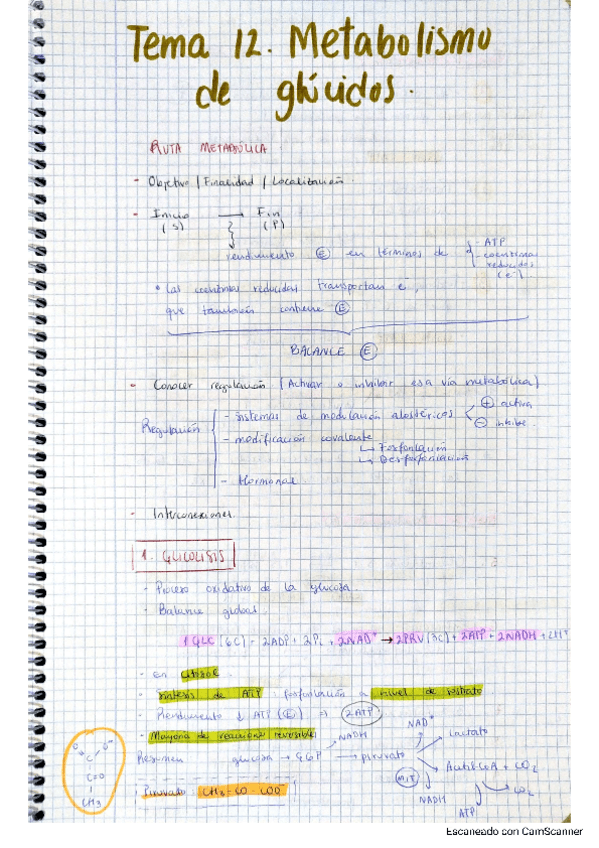 Tema 12. Metabolismo
de glúcidos.
RUTA METABÓLICA
- Objetivo / Finalidad / Localización.
- Inicio → Fin
(S) (P)
rendimiento E en términos de - ATP
- coenzimas
reducidos
(e-)
• Las coenzimas reducidas transportan e-,
que también contiene E
BALANCE E
- Conocer regulación (Activar o inhibir esa vía metabólica)
Regulación
- Sistemas de modulación alostéricos + activa
- inhibe.
- modificación covalente
↳ Fosforilación
↳ Desfosforilación
- Hormonal
- Interconexiones.
1. GLICOLISIS
- Proceso oxidativo de la glucosa
- Balance global.
1 GLC (6C) + 2ADP + 2Pi + 2NAD+ → 2PRV (3C) + 2ATP + 2NADH + 2H+
- en citosol.
- Síntesis de ATP: fosforilación a nivel de sustrato
- Rendimiento ↓ ATP (E) ⇒ 2 ATP
- Mayoría de reacciones reversible
Resumen glucosa → G6P → piruvato
NADH
NAD+
Lactato
MIT
Acetil CoA + CO2
NADH
CO2
ATP
Piruvato: CH3-CO-COO-
O O-
C
C=O
CH3
Escaneado con CamScanner